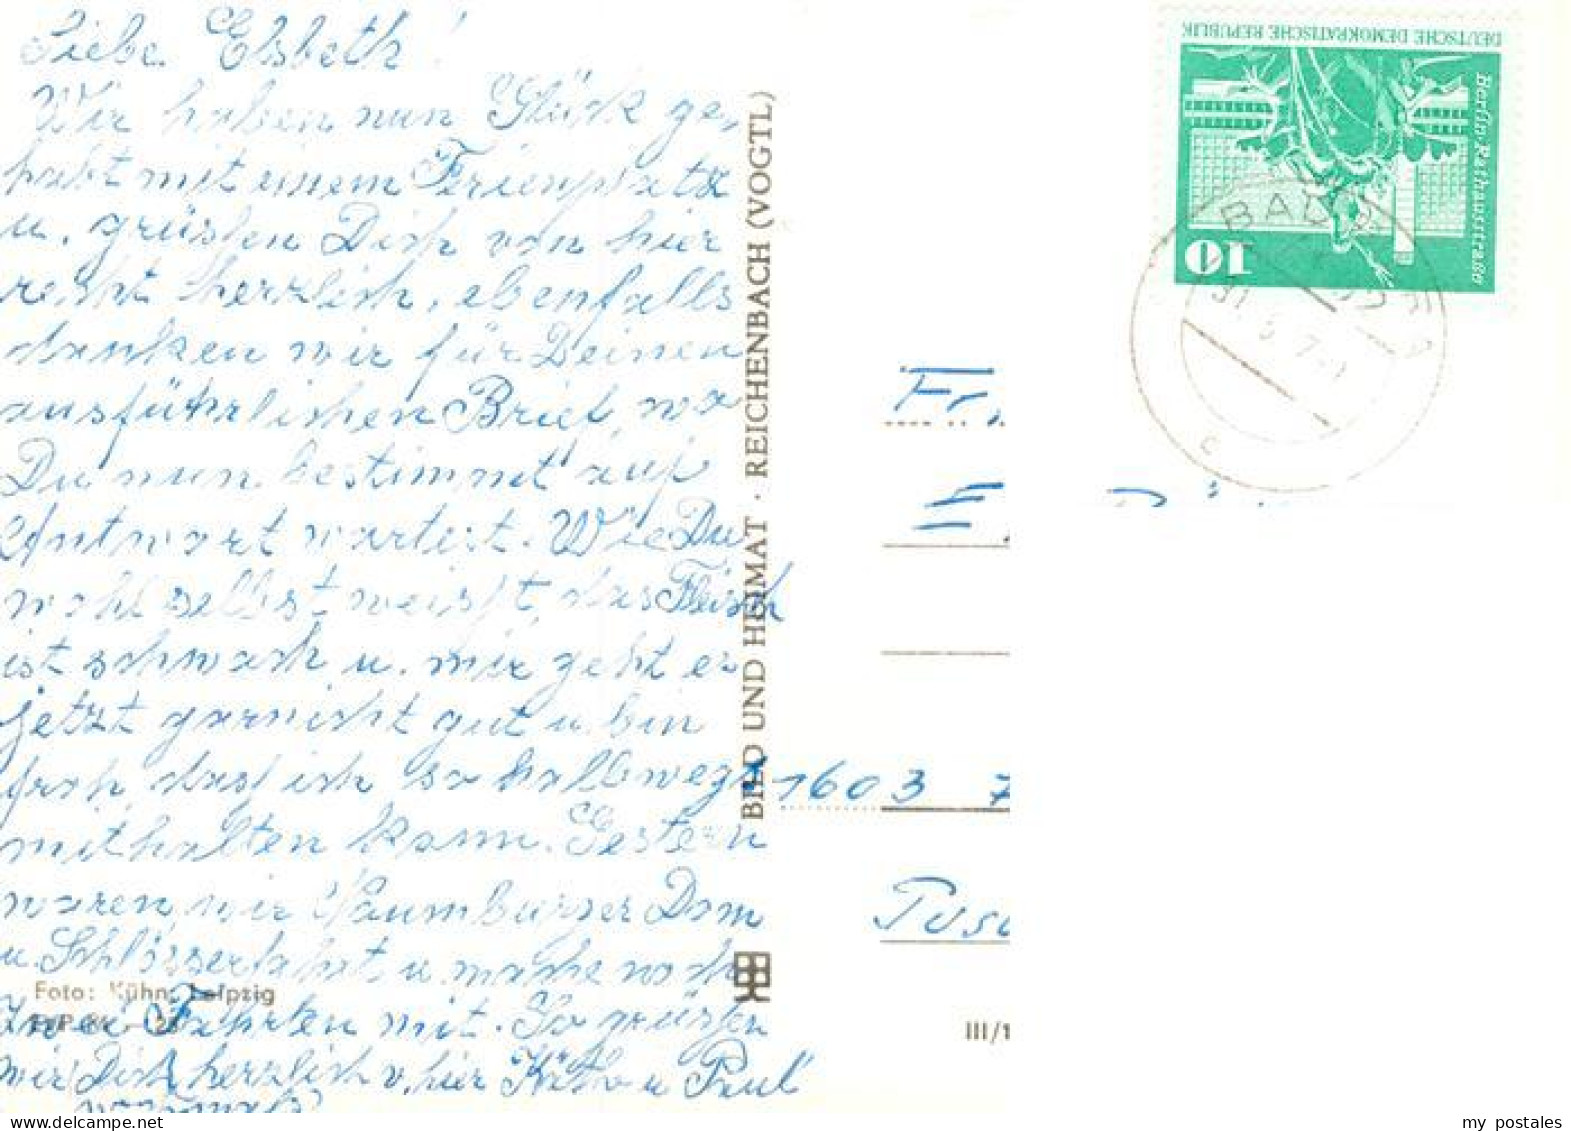 Liebe Elsbeth!
Wir haben nun Glück ge-
habt mit einem Ferienplatz
u. grüßen Dich von hier
recht herzlich, ebenfalls
danken wir für Deinen
ausführlichen Brief, wo
Du nun bestimmt auf
Antwort wartest. Wie Du
wohl selbst weißt, das Fleisch
ist schwach u. mir geht es
jetzt garnicht gut u. bin
froh, daß ich so halbwegs
mithalten kann. Gestern
waren wir Naumburger Dom
u. Schlösserfahrt u. mache noch
zwei Fahrten mit. So grüßen
wir Dich herzlich v. hier Käthe u Paul
nochmals
Foto: Kühn, Leipzig
BILD UND HEIMAT · REICHENBACH (VOGTL)
III/1
DEUTSCHE DEMOKRATISCHE REPUBLIK
Berlin·Rathausstraße
10
BAD
c
Fr.
E.
1603 7
my postales